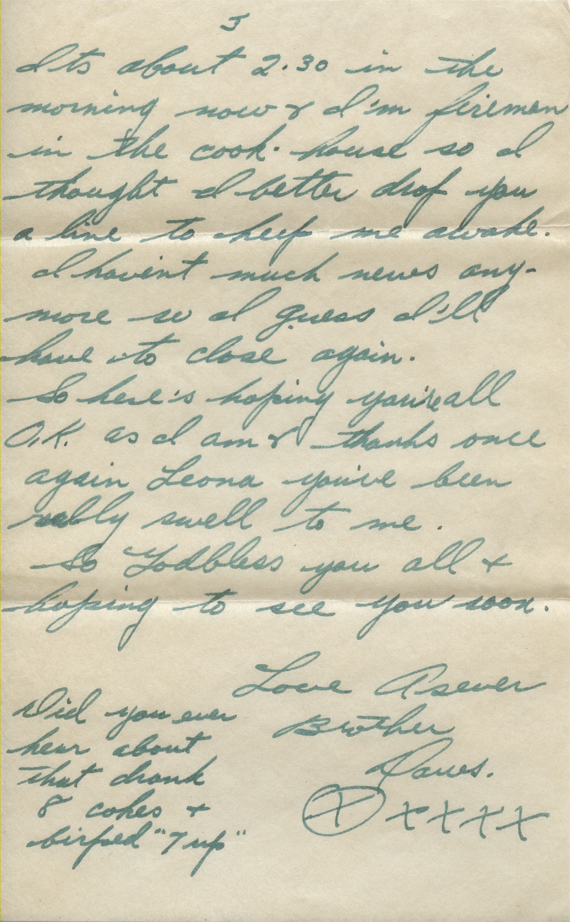 5
Its about 2.30 in the
morning now & I'm firemen
in the cook-house so I
thought I better drop you
a line to keep me awake.
I havent much news any-
more so I guess I'll
have to close again.
So here's hoping you're all
O.K. as I am & thanks once
again Leona you've been
really swell to me.
So Godbless you all &
hoping to see you soon.
Love Asever
Brother
XXXXX
Did you ever
hear about
that drank
8 cokes &
birped "7 up"